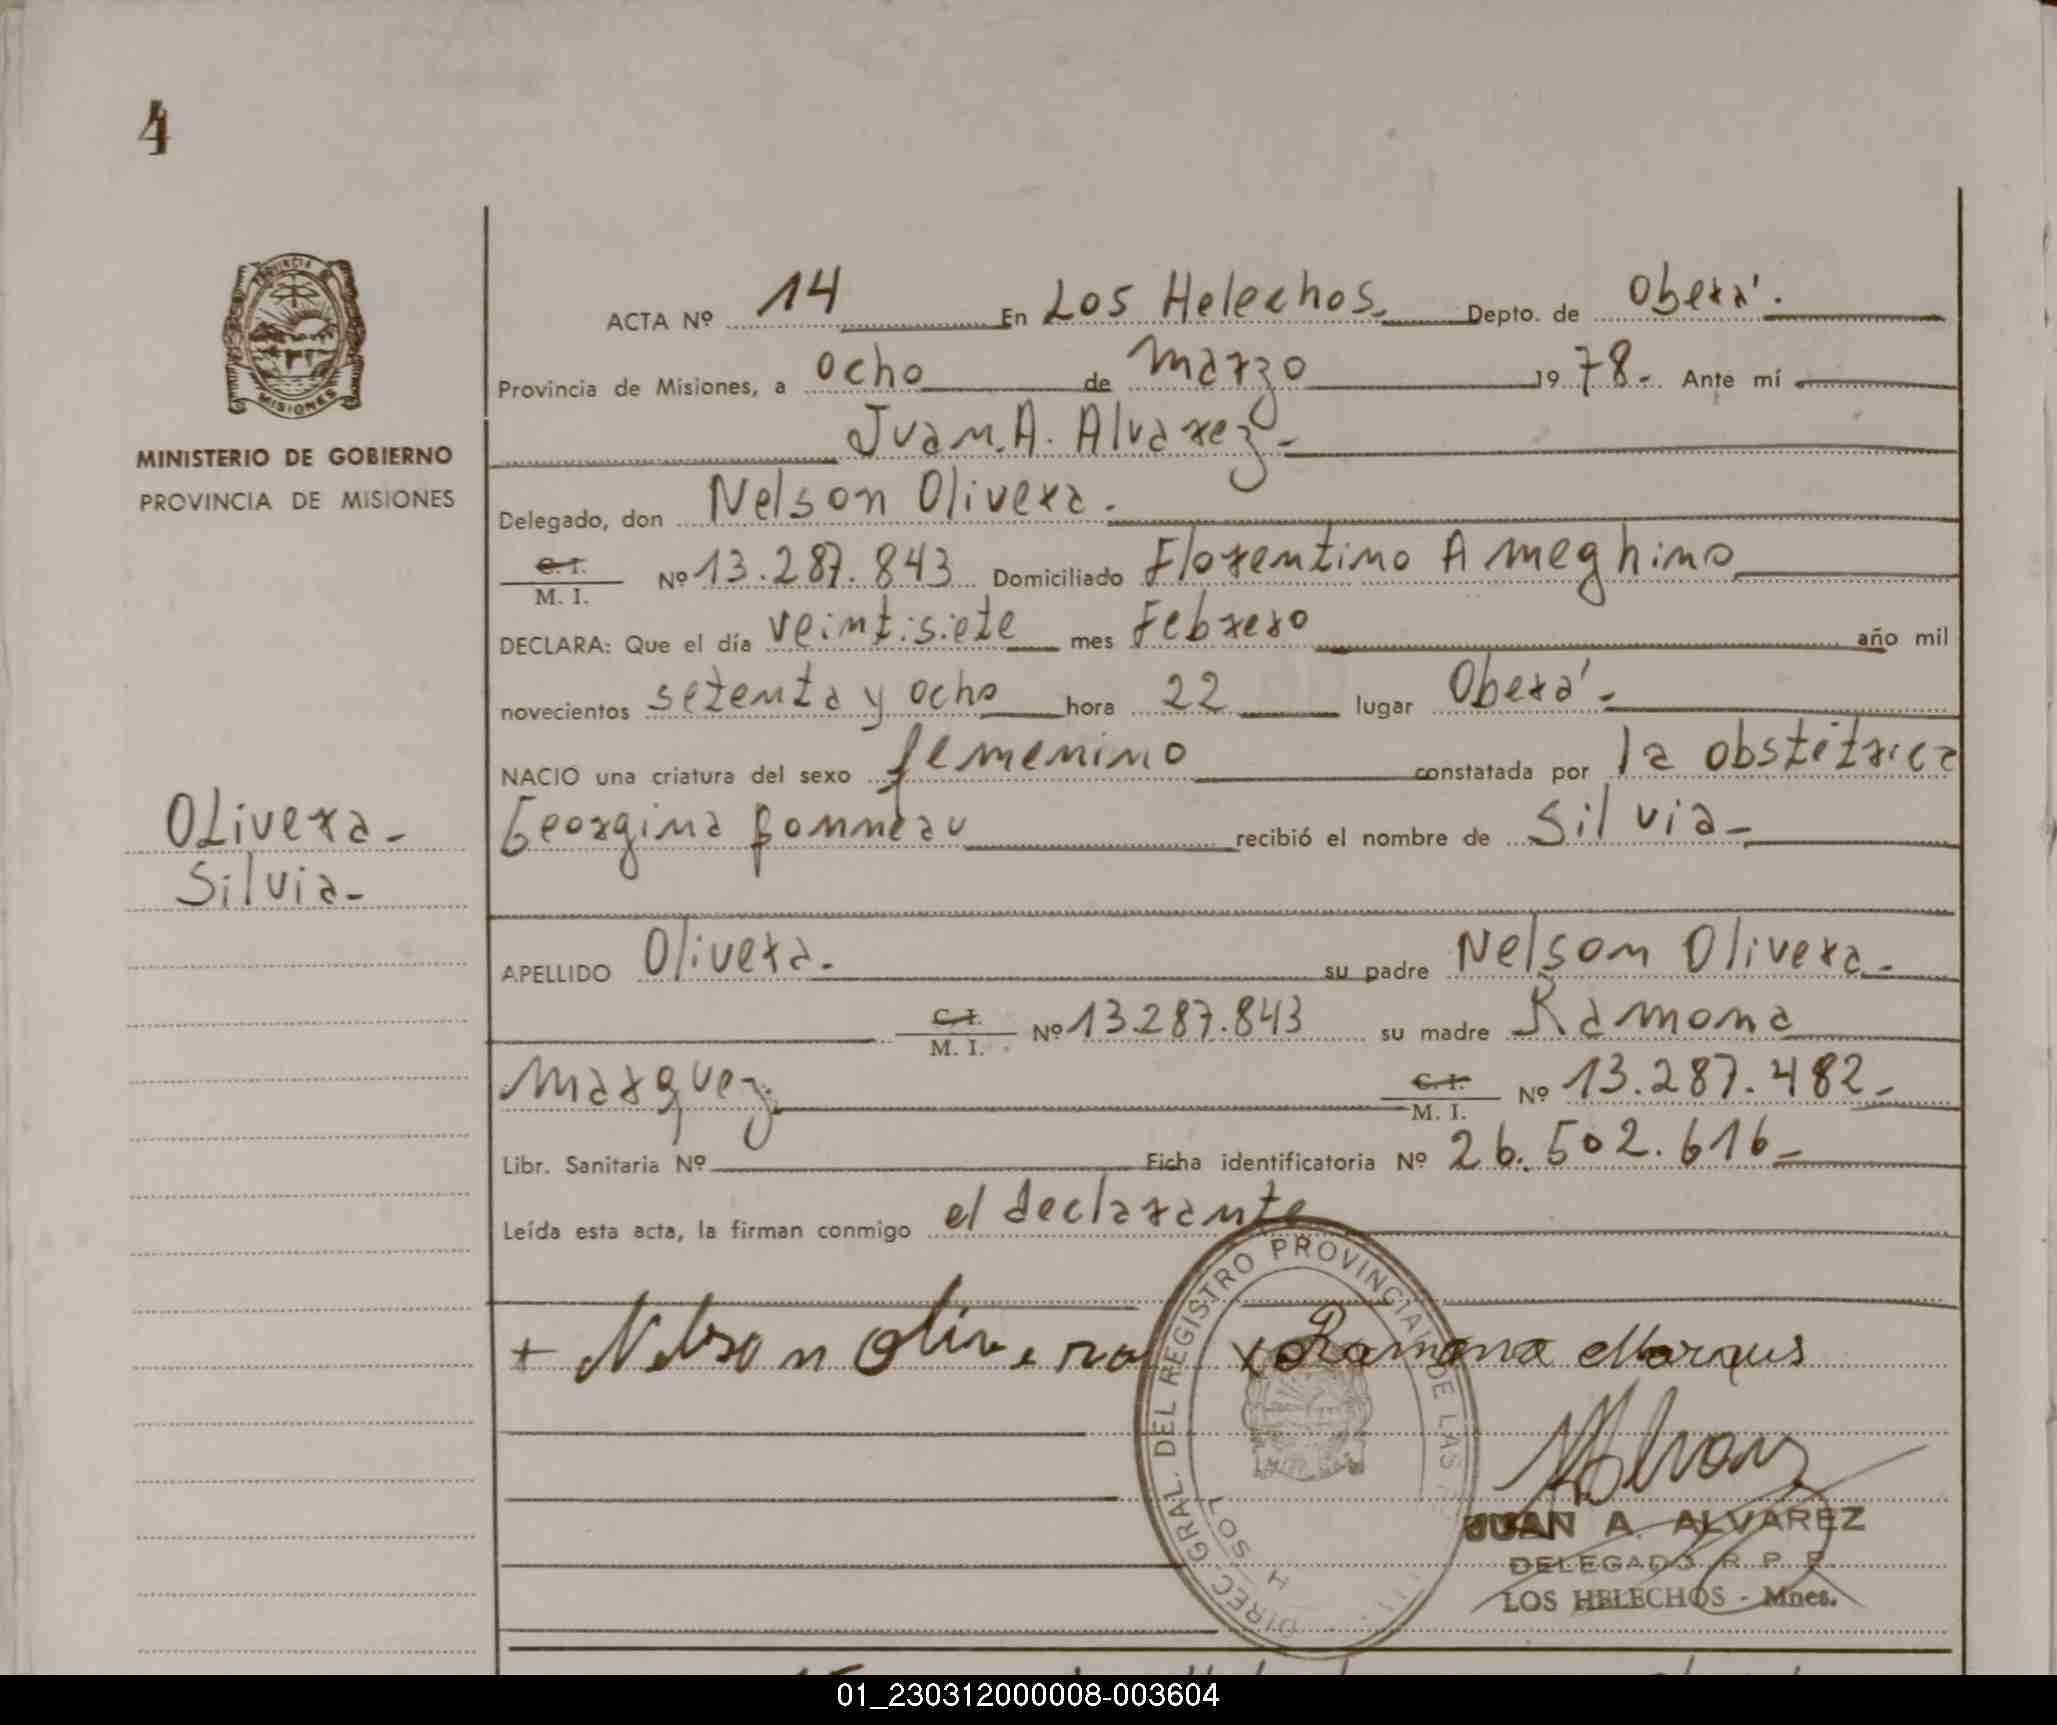 4
PROVINCIA DE
MISIONES
MINISTERIO DE GOBIERNO
PROVINCIA DE MISIONES
Olivera-
Silvia-
ACTA Nº 14 En Los Helechos. Depto. de Oberá.
Provincia de Misiones, a ocho de marzo 1978- Ante mí
Juan. A. Alvarez-
Delegado, don Nelson Olivera.
C. I.
M. I. Nº 13.287.843 Domiciliado Florentino Ameghino
DECLARA: Que el día veintisiete mes Febrero año mil
novecientos setenta y ocho hora 22 lugar Oberá-
NACIO una criatura del sexo femenino constatada por la obstétrica
Georgina Bonneau recibió el nombre de Silvia-
APELLIDO Olivera. su padre Nelson Olivera.
C. I.
M. I. Nº 13.287.843 su madre Ramona
Marquez. C. I.
M. I. Nº 13.287.482-
Libr. Sanitaria Nº Ficha identificatoria Nº 26.502.616-
Leída esta acta, la firman conmigo el declarante
+ Nelson Olivera x Ramona Marques
DIREC. GRAL. DEL REGISTRO PROVINCIAL DE LAS
LOS H
JUAN A. ALVAREZ
DELEGADO R. P. P.
LOS HELECHOS - Mnes.
01_230312000008-003604